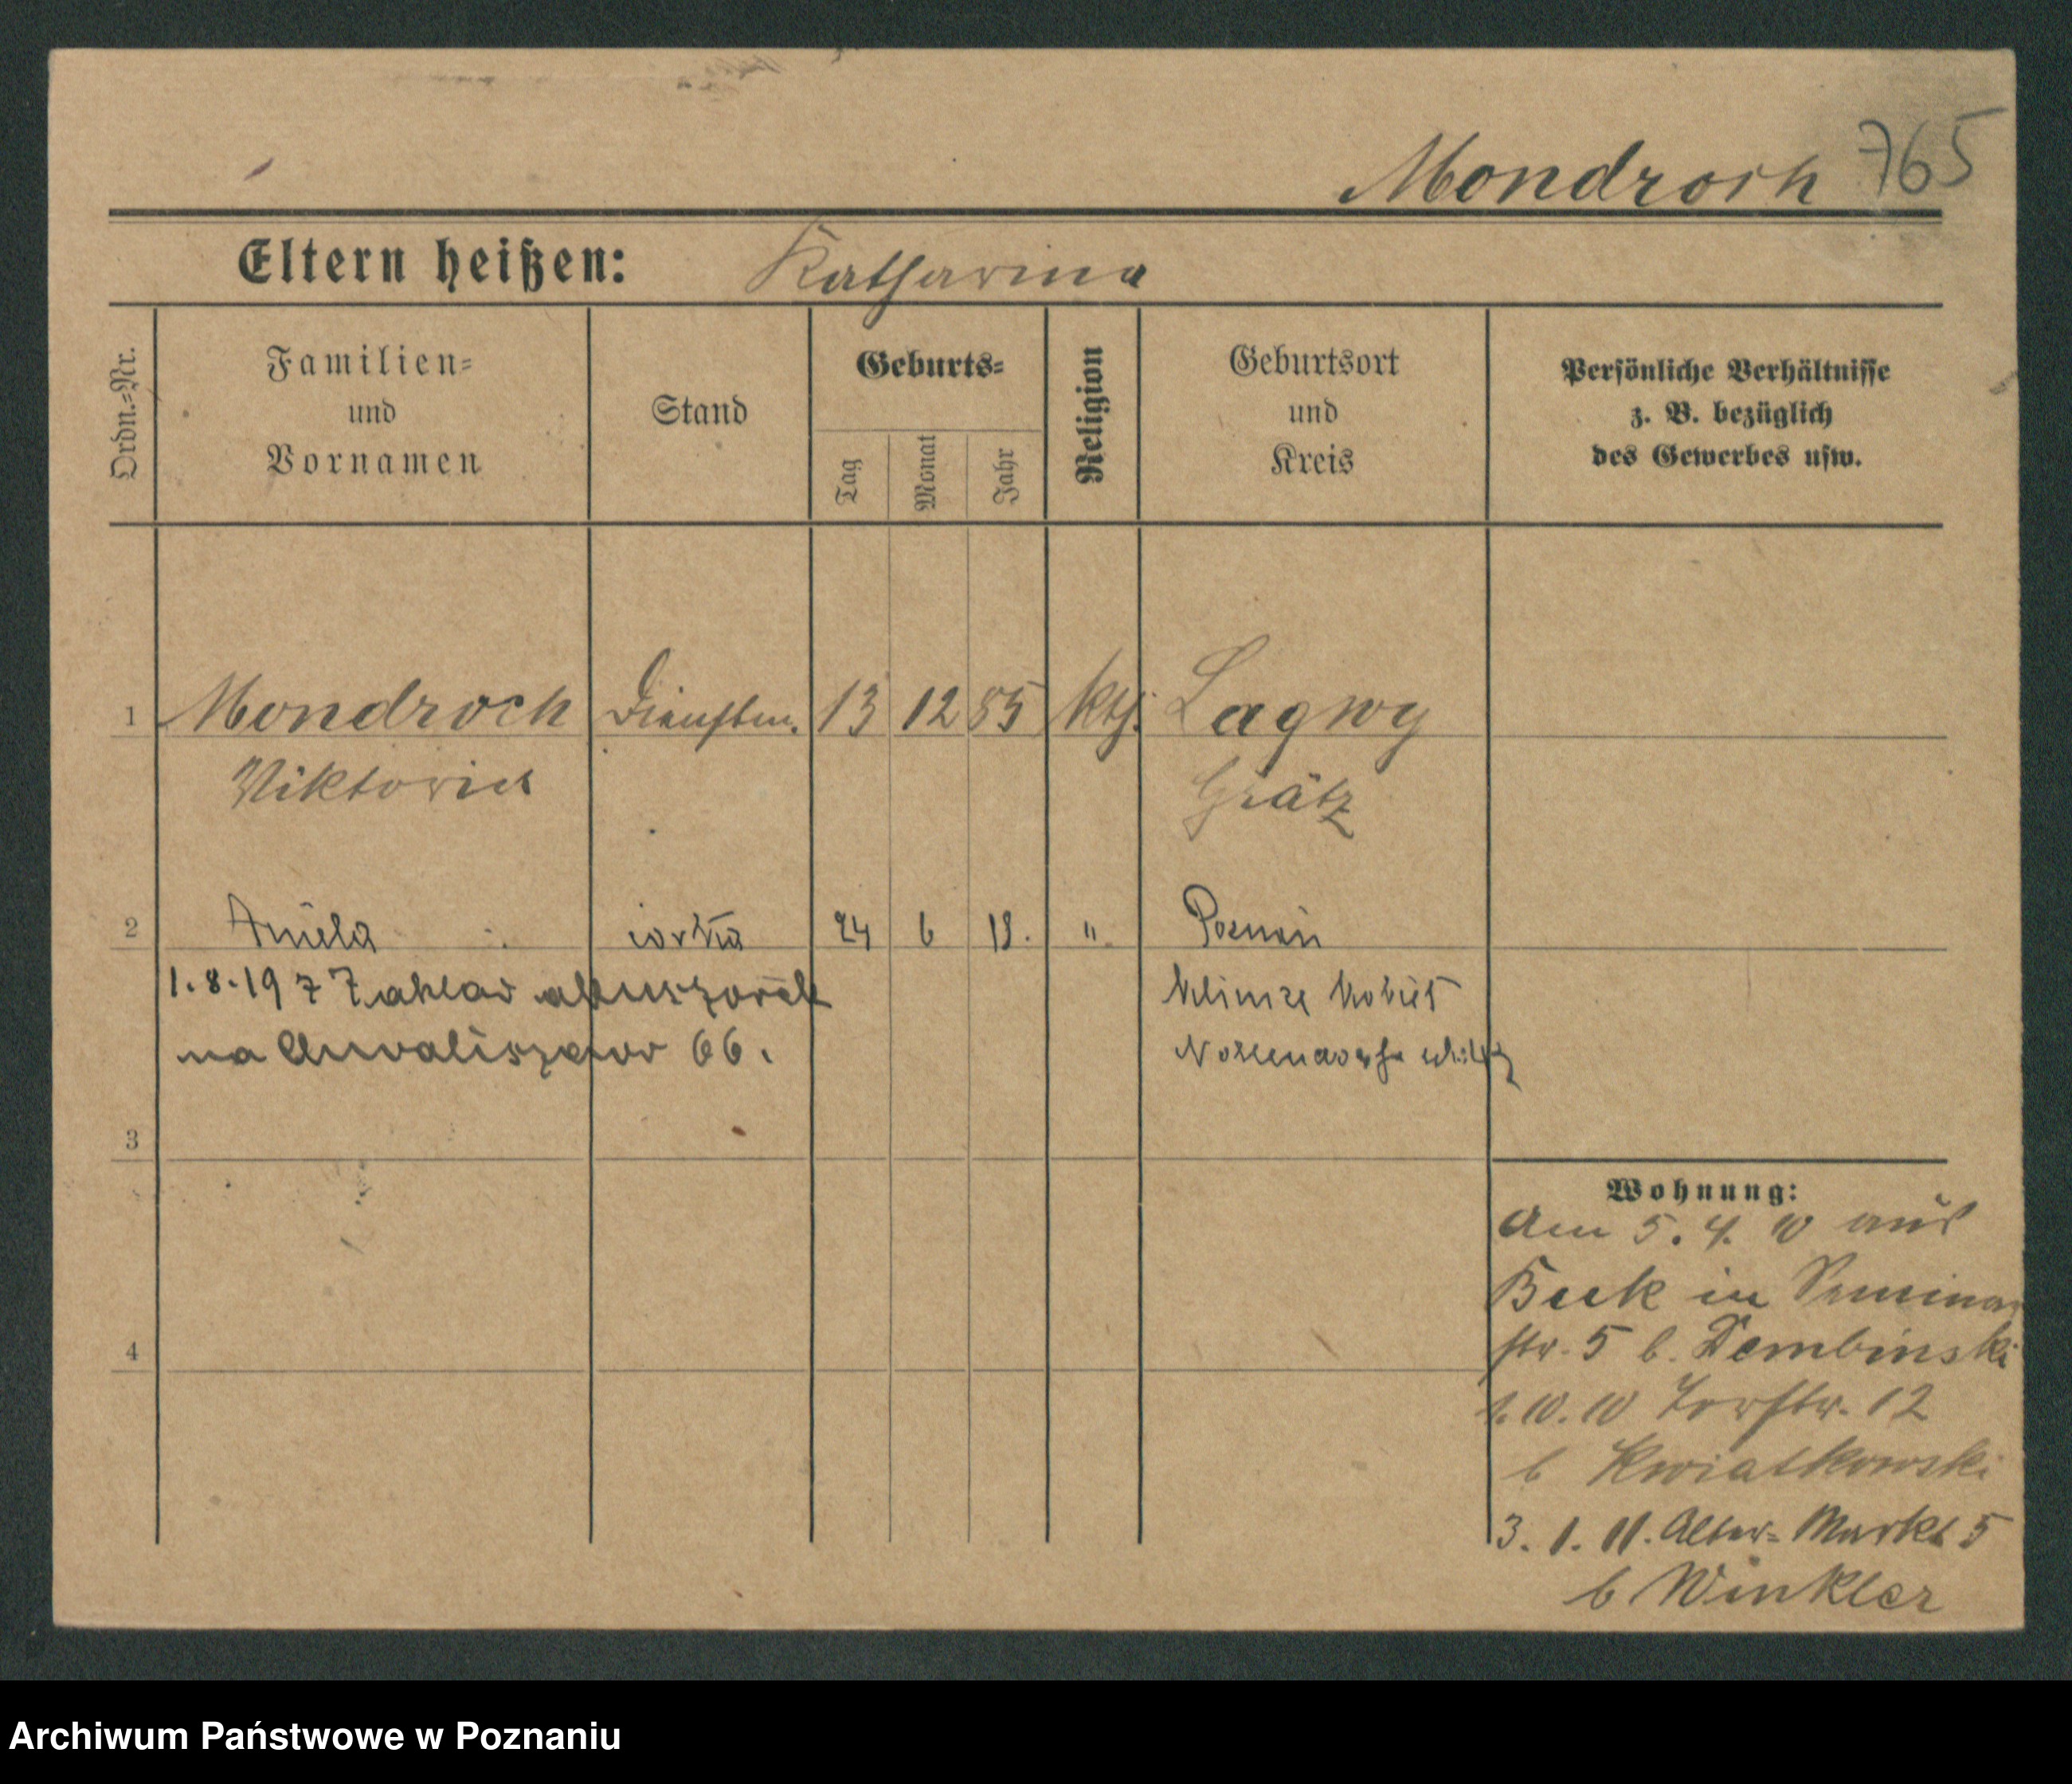 Mondroch 765
Eltern heißen: Katharina
Ordn.-Nr.
Familien-
und
Vornamen
Stand
Geburts-
Tag
Monat
Jahr
Religion
Geburtsort
und
Kreis
Persönliche Verhältnisse
z. B. bezüglich
des Gewerbes usw.
1 Mondroch Dienstm. 13 12 85 kth. Lagwy
Viktoria Grätz
2 Aniela córka 24 6 19. " Poznań
1.8.19 z Zakład akuszerek
na Chwaliszewo 66.
3
Wohnung:
Am 5. 4. 10 aus
Buk in Seminar
str. 5 b. Dembinski
1.10.10 Torstr. 12
b Kwiatkowski
4
3. 1. 11. Alter-Markt 5
b Winkler
Archiwum Państwowe w Poznaniu